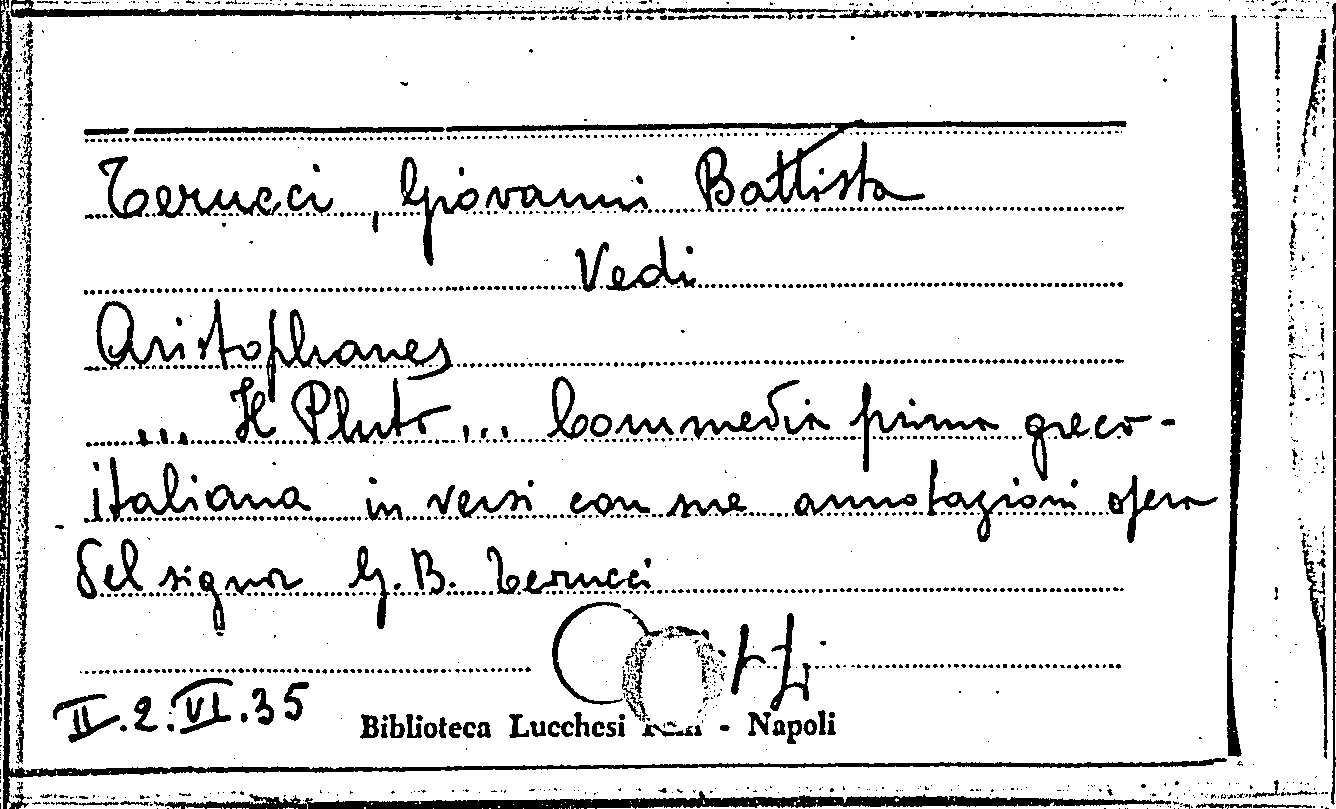 Terucci, Giovanni Battista
Vedi
Aristophanes
... Il Pluto ... Commedia prima greco-
italiana in versi con sue annotazioni opera
del signor G. B. Terucci
II.2.VI.35
Biblioteca Lucchesi - Napoli